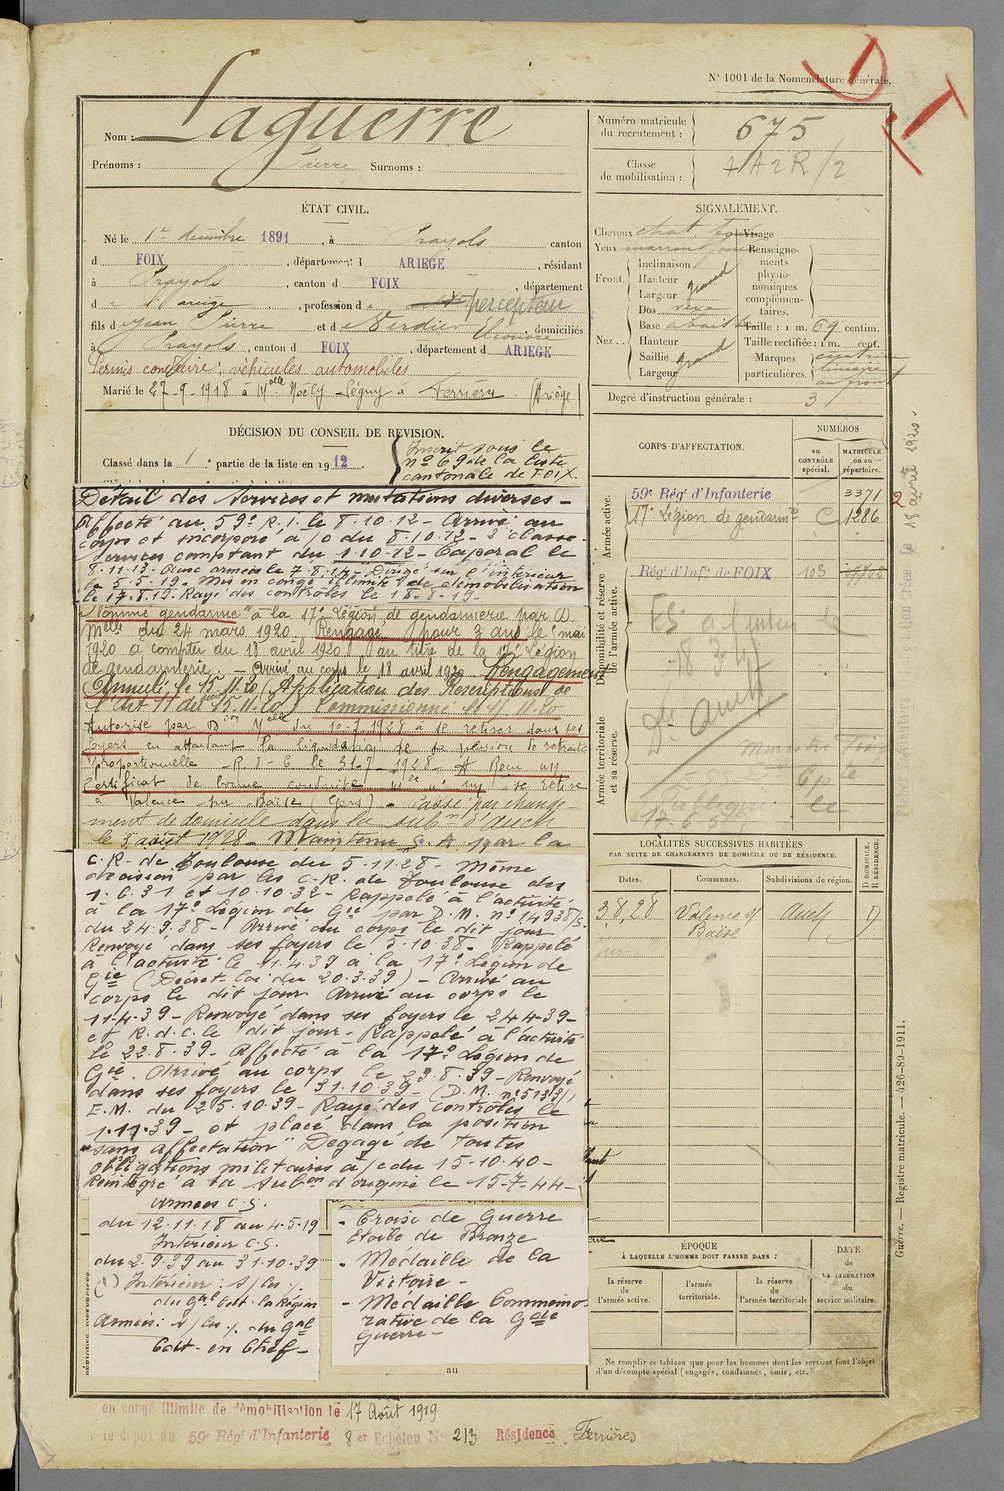 N° 1001 de la Nomenclature générale.
Nom : Laguerre
Prénoms : Pierre Surnoms :
Numéro matricule du recrutement : 675
Classe de mobilisation : A2R/2
ÉTAT CIVIL.
Né le 1er décembre 1891, à Prayols canton
d FOIX, département d ARIEGE, résidant
à Prayols, canton d FOIX, département
d e l'ariège, profession d e percepteur
fils d e Jean Pierre et d e Verdier Eléonore, domiciliés
à Prayols, canton d FOIX, département d ARIEGE
Permis conduire véhicules automobiles
Marié le 27-9-1918 à Melle Noëly Ségny à Ferrières (Ariège)
SIGNALEMENT.
Cheveux chat foncé Visage
Yeux marron
Front
Inclinaison
Hauteur grand
Largeur
Nez
Dos vexe
Base abaissée
Hauteur
Saillie grand
Largeur
Renseignements physionomiques complémentaires.
Taille : 1 m. 69 centim.
Taille rectifiée : 1 m. cent.
Marques particulières. cicatrice linéaire au front
Degré d'instruction générale : 3
DÉCISION DU CONSEIL DE REVISION.
Classé dans la 1e partie de la liste en 1912
Inscrit sous le
n° 69 de la liste
cantonale de FOIX.
CORPS D'AFFECTATION.
NUMÉROS
au CONTRÔLE spécial.
MATRICULE ou au répertoire.
Armée active.
59e Régt d'Infanterie 3371
17e Légion de gendarmrie C 1286
Disponibilité et réserve de l'armée active.
Régt d'Infie de FOIX 103
Armée territoriale et sa réserve.
18 avril 1920
Détail des Services et mutations diverses -
Affecté au 59e R.I. le 8-10-12 - Arrivé au
corps et incorporé à /c du 8-10-12 - 2e classe -
Services comptant du 1-10-12 - Caporal le
8-11-13 - Aux armées le 7-8-14 - Dirigé sur l'intérieur
le 5-5-19 - Mis en congé illimité de démobilisation
le 17-8-19 - Rayé des contrôles le 18-8-19 -
"Nommé gendarme" à la 17e Légion de gendarmerie par D.
Melle du 24 mars 1920. Rengagé pour 3 ans le mai
1920 à compter du 18 avril 1920 au titre de la 17e Légion
de gendarmerie. - Arrivé au corps le 18 avril 1920. Rengagement
Annulé le 15-11-20 (Application des Prescriptions de
l'art 11 du 15-11-20) Commissionné le 15-11-20
Autorisé par Don Melle du 10-7-1928 à se retirer dans ses
foyers en attendant la liquidation de sa pension de retraite
proportionnelle - R.d.C le 31-7-1928 - A Reçu un
Certificat de bonne conduite se retire
à Valence sur Baïse (Gers) - Passé par change-
ment de domicile dans la subon d'Auch
le 3 août 1928 - Maintenu S.A par la
C.R. de Toulouse du 5-11-28 - Même
décision par les C.R. de Toulouse des
1-6-31 et 10-10-32 - Rappelé à l'activité
à la 17e Légion de Gie par D.M. n° 14938/s.
du 24-9-38 - Arrivé au corps le dit jour
Renvoyé dans ses foyers le 5-10-38 - Rappelé
à l'activité le 11-4-39 à la 17e Légion de
Gie (Décret-loi du 20-3-39) - Arrivé au
corps le dit jour Arrivé au corps le
11-4-39 - Renvoyé dans ses foyers le 24-4-39 -
et R.d.C. le dit jour - Rappelé à l'activité
le 22-8-39 - Affecté à la 17e Légion de
Gie. Arrivé au corps le 23-8-39 - Renvoyé
dans ses foyers le 31-10-39 - (D.M. n° 5133/1
E.M. du 25-10-39 - Rayé des contrôles le
1-11-39 - et placé dans la position
"sans affectation" Dégagé de toutes
obligations militaires à /c du 15-10-40 -
Réintégré à la Subon d'origine le 15-7-44 -
Armées C.S.
du 12-11-18 au 4-5-19
Intérieur C.S.
du 2-9-39 au 31-10-39
Intérieur : s/
du Gal Cdt la Région
Armées : s/ du Gal
Cdt en Chef -
- Croix de Guerre
Etoile de Bronze
- Médaille de la
Victoire -
- Médaille Commémo-
rative de la Gde
Guerre -
au
LOCALITÉS SUCCESSIVES HABITÉES
PAR SUITE DE CHANGEMENTS DE DOMICILE OU DE RÉSIDENCE.
Dates. Communes. Subdivisions de région. D DOMICILE. R RÉSIDENCE.
3 8, 28 Valence s/ Baïse Auch D
ÉPOQUE
À LAQUELLE L'HOMME DOIT PASSER DANS :
la réserve de l'armée active.
l'armée territoriale.
la réserve de l'armée territoriale
DATE de LA LIBÉRATION du service militaire.
Ne remplir ce tableau que pour les hommes dont les services font l'objet
d'un décompte spécial (engagés, condamnés, omis, etc.)
Guerre. — Registre matricule. — 426-89-1911.
en congé illimité de démobilisation le 17 Août 1919
le dépôt du 59e Régt d'Infanterie 8 er Echelon N° 213 Résidence Ferrières